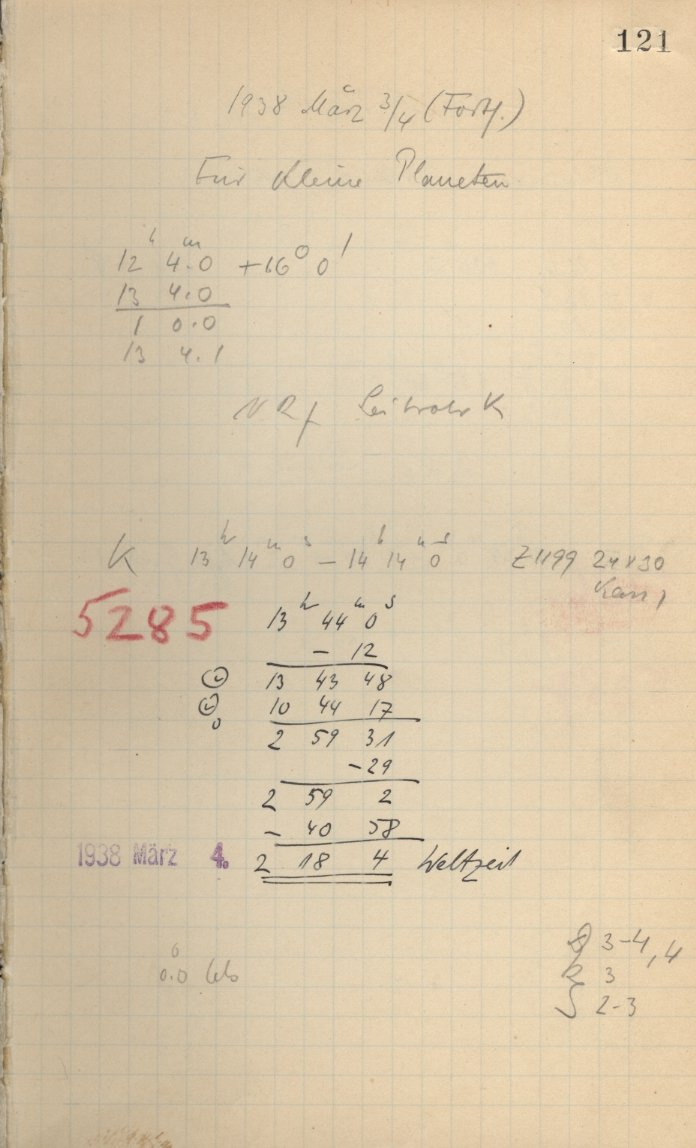 121
1938 März 3/4 (Fortf.)
Für Kleine Planeten
12 h 4.0 m +16° 0'
13 4.0
1 0.0
13 4.1
Leitrohr K
K 13 h 14 m 0 s – 14 h 14 m 0 s Z1199 24x30
5285 13 h 44 m 0 s
– 12
13 43 48
10 44 17
2 59 31
–29
2 59 2
– 40 58
1938 März 4. 2 18 4 Weltzeit
3–4, 4
0.0
3
2–3